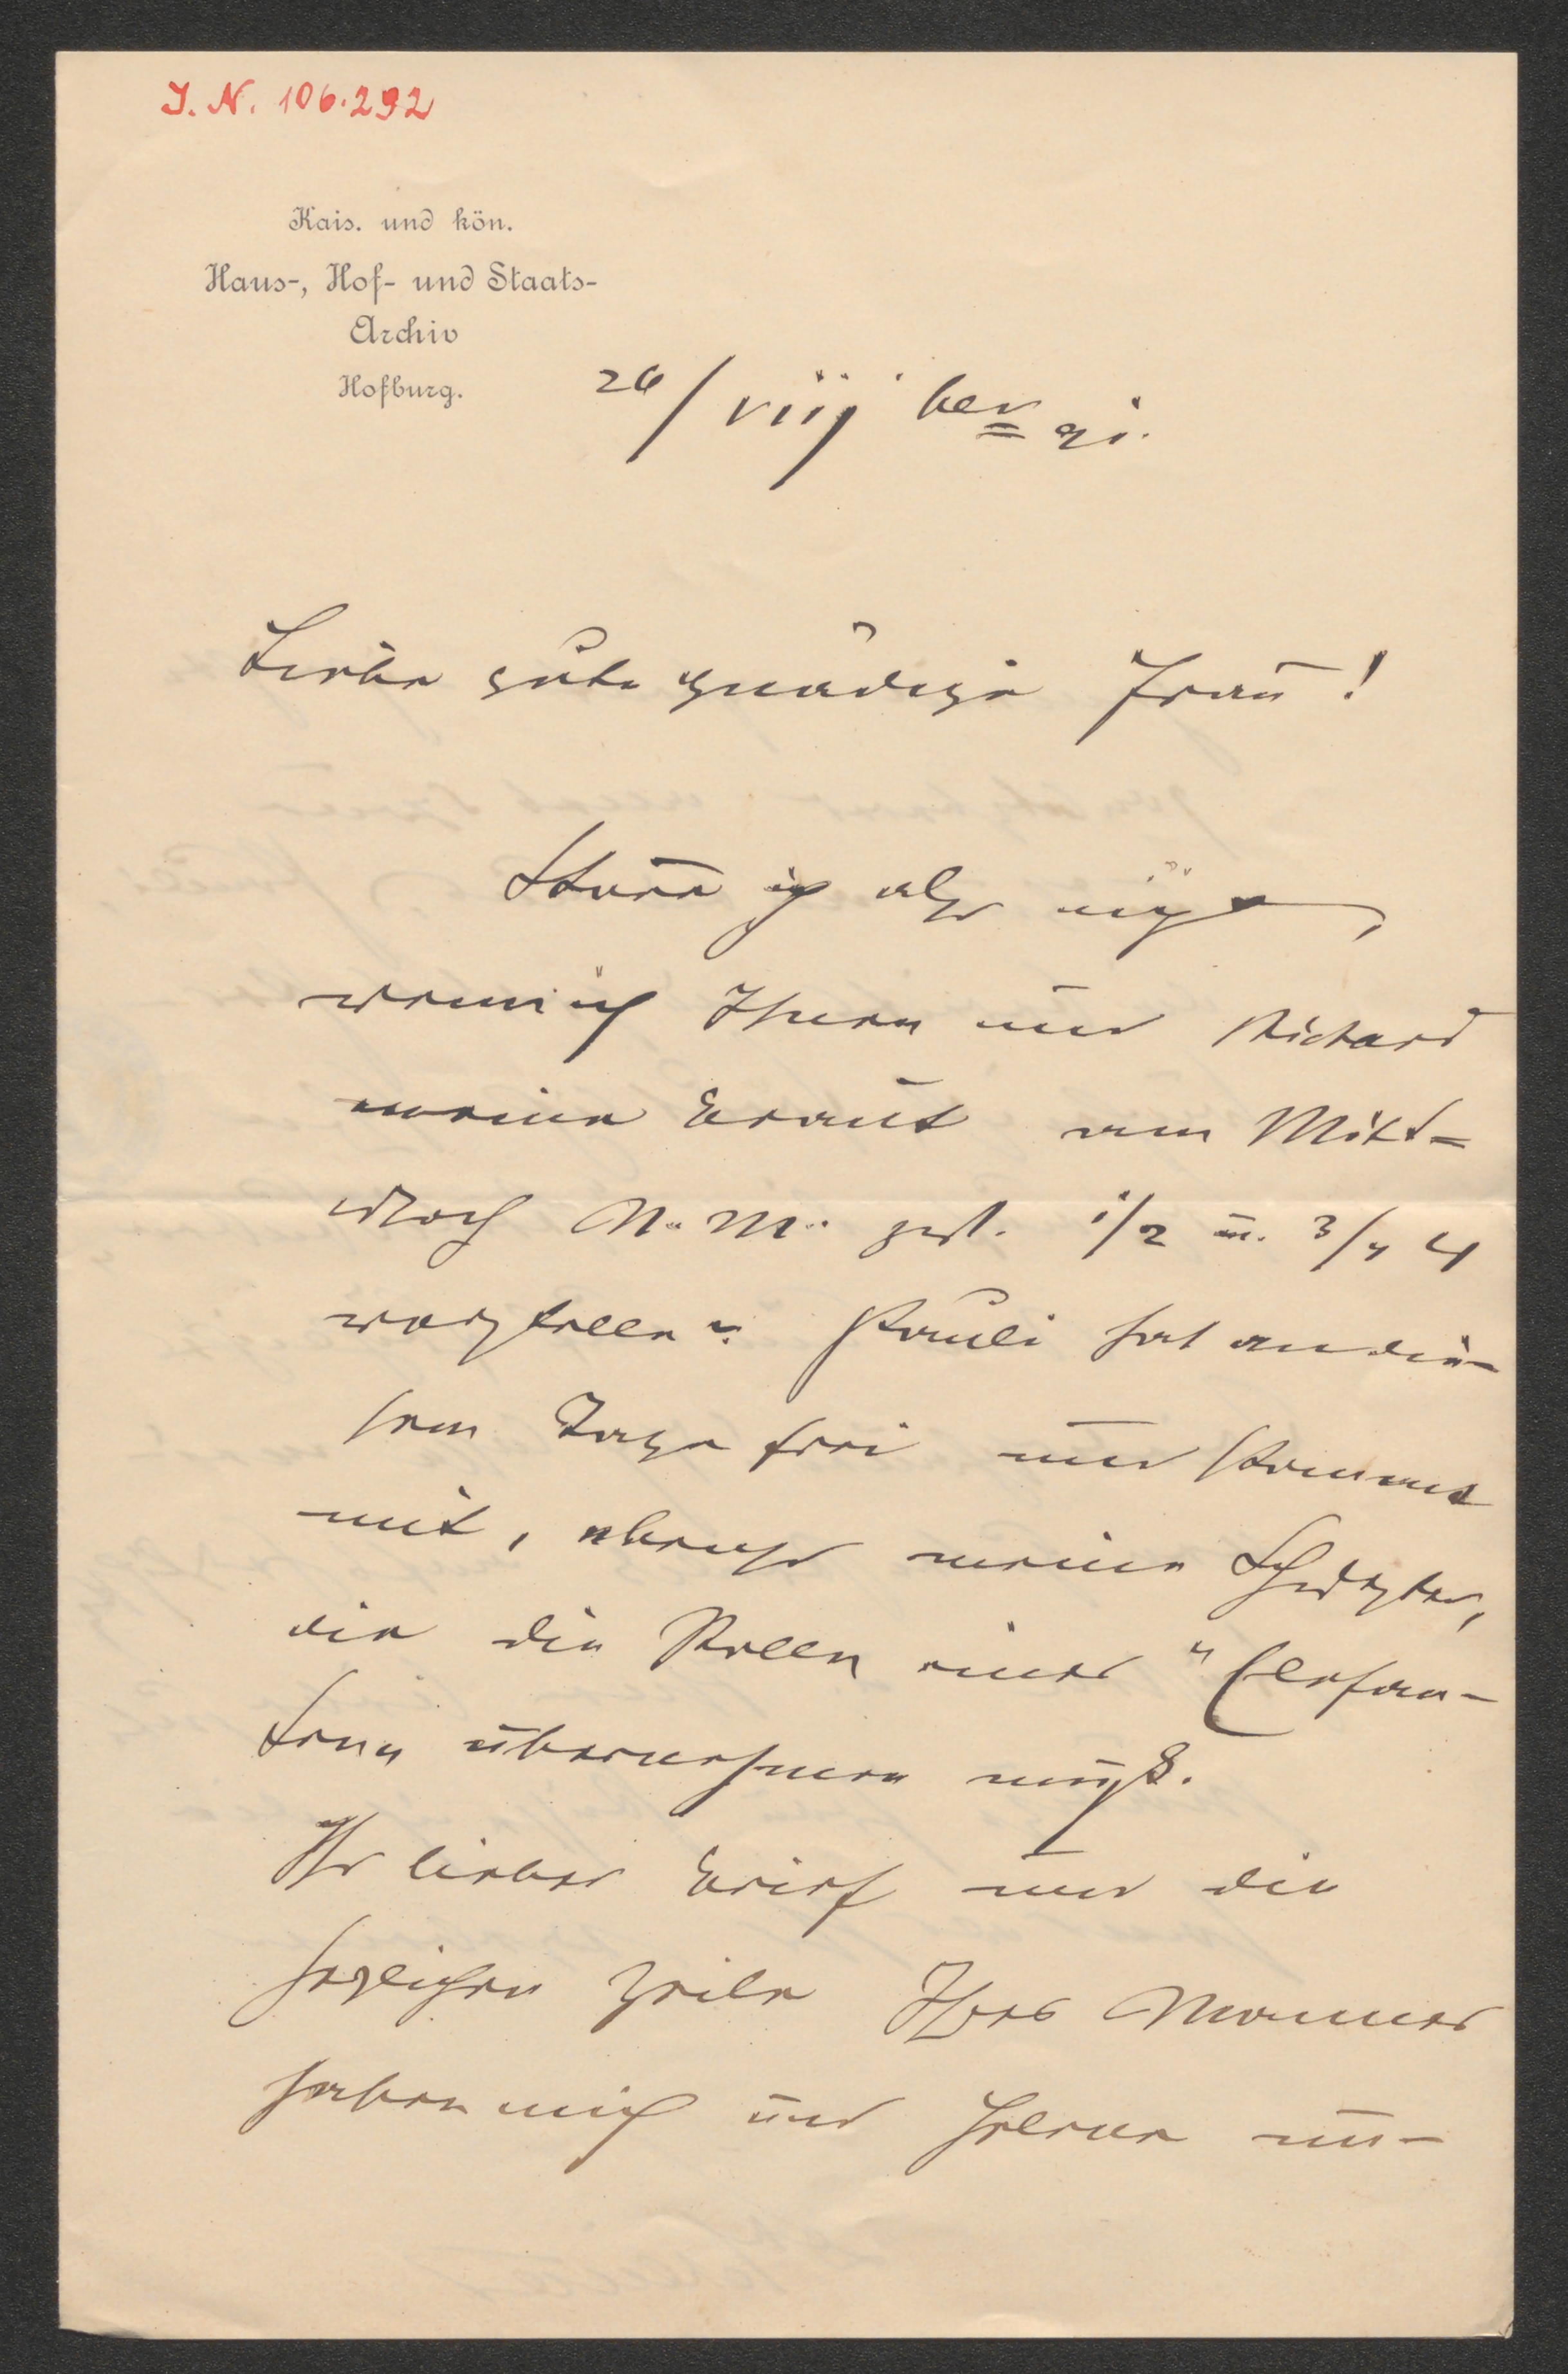 I. N. 106.292
Kais. und kön.
Haus-, Hof- und Staats-
Archiv
Hofburg.
26/VIIIber 91.
Liebe gute gnädige Frau!
Störe ich also nicht,
wenn ich Ihnen und Richard
meine Braut am Mitt-
woch N. M. zw. 1/2 u. 3/4 4
vorstelle? Pauli hat an die-
sem Tage frei und kommt
mit, ebenso meine Schwester,
die die Rollen einer
übernehmen muß.
Ihr lieber Brief und die
herzlichen Zeilen Ihres Mannes
haben mich und Helene un-